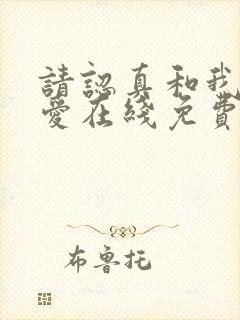 請認真和我
愛在綫免費
布魯托